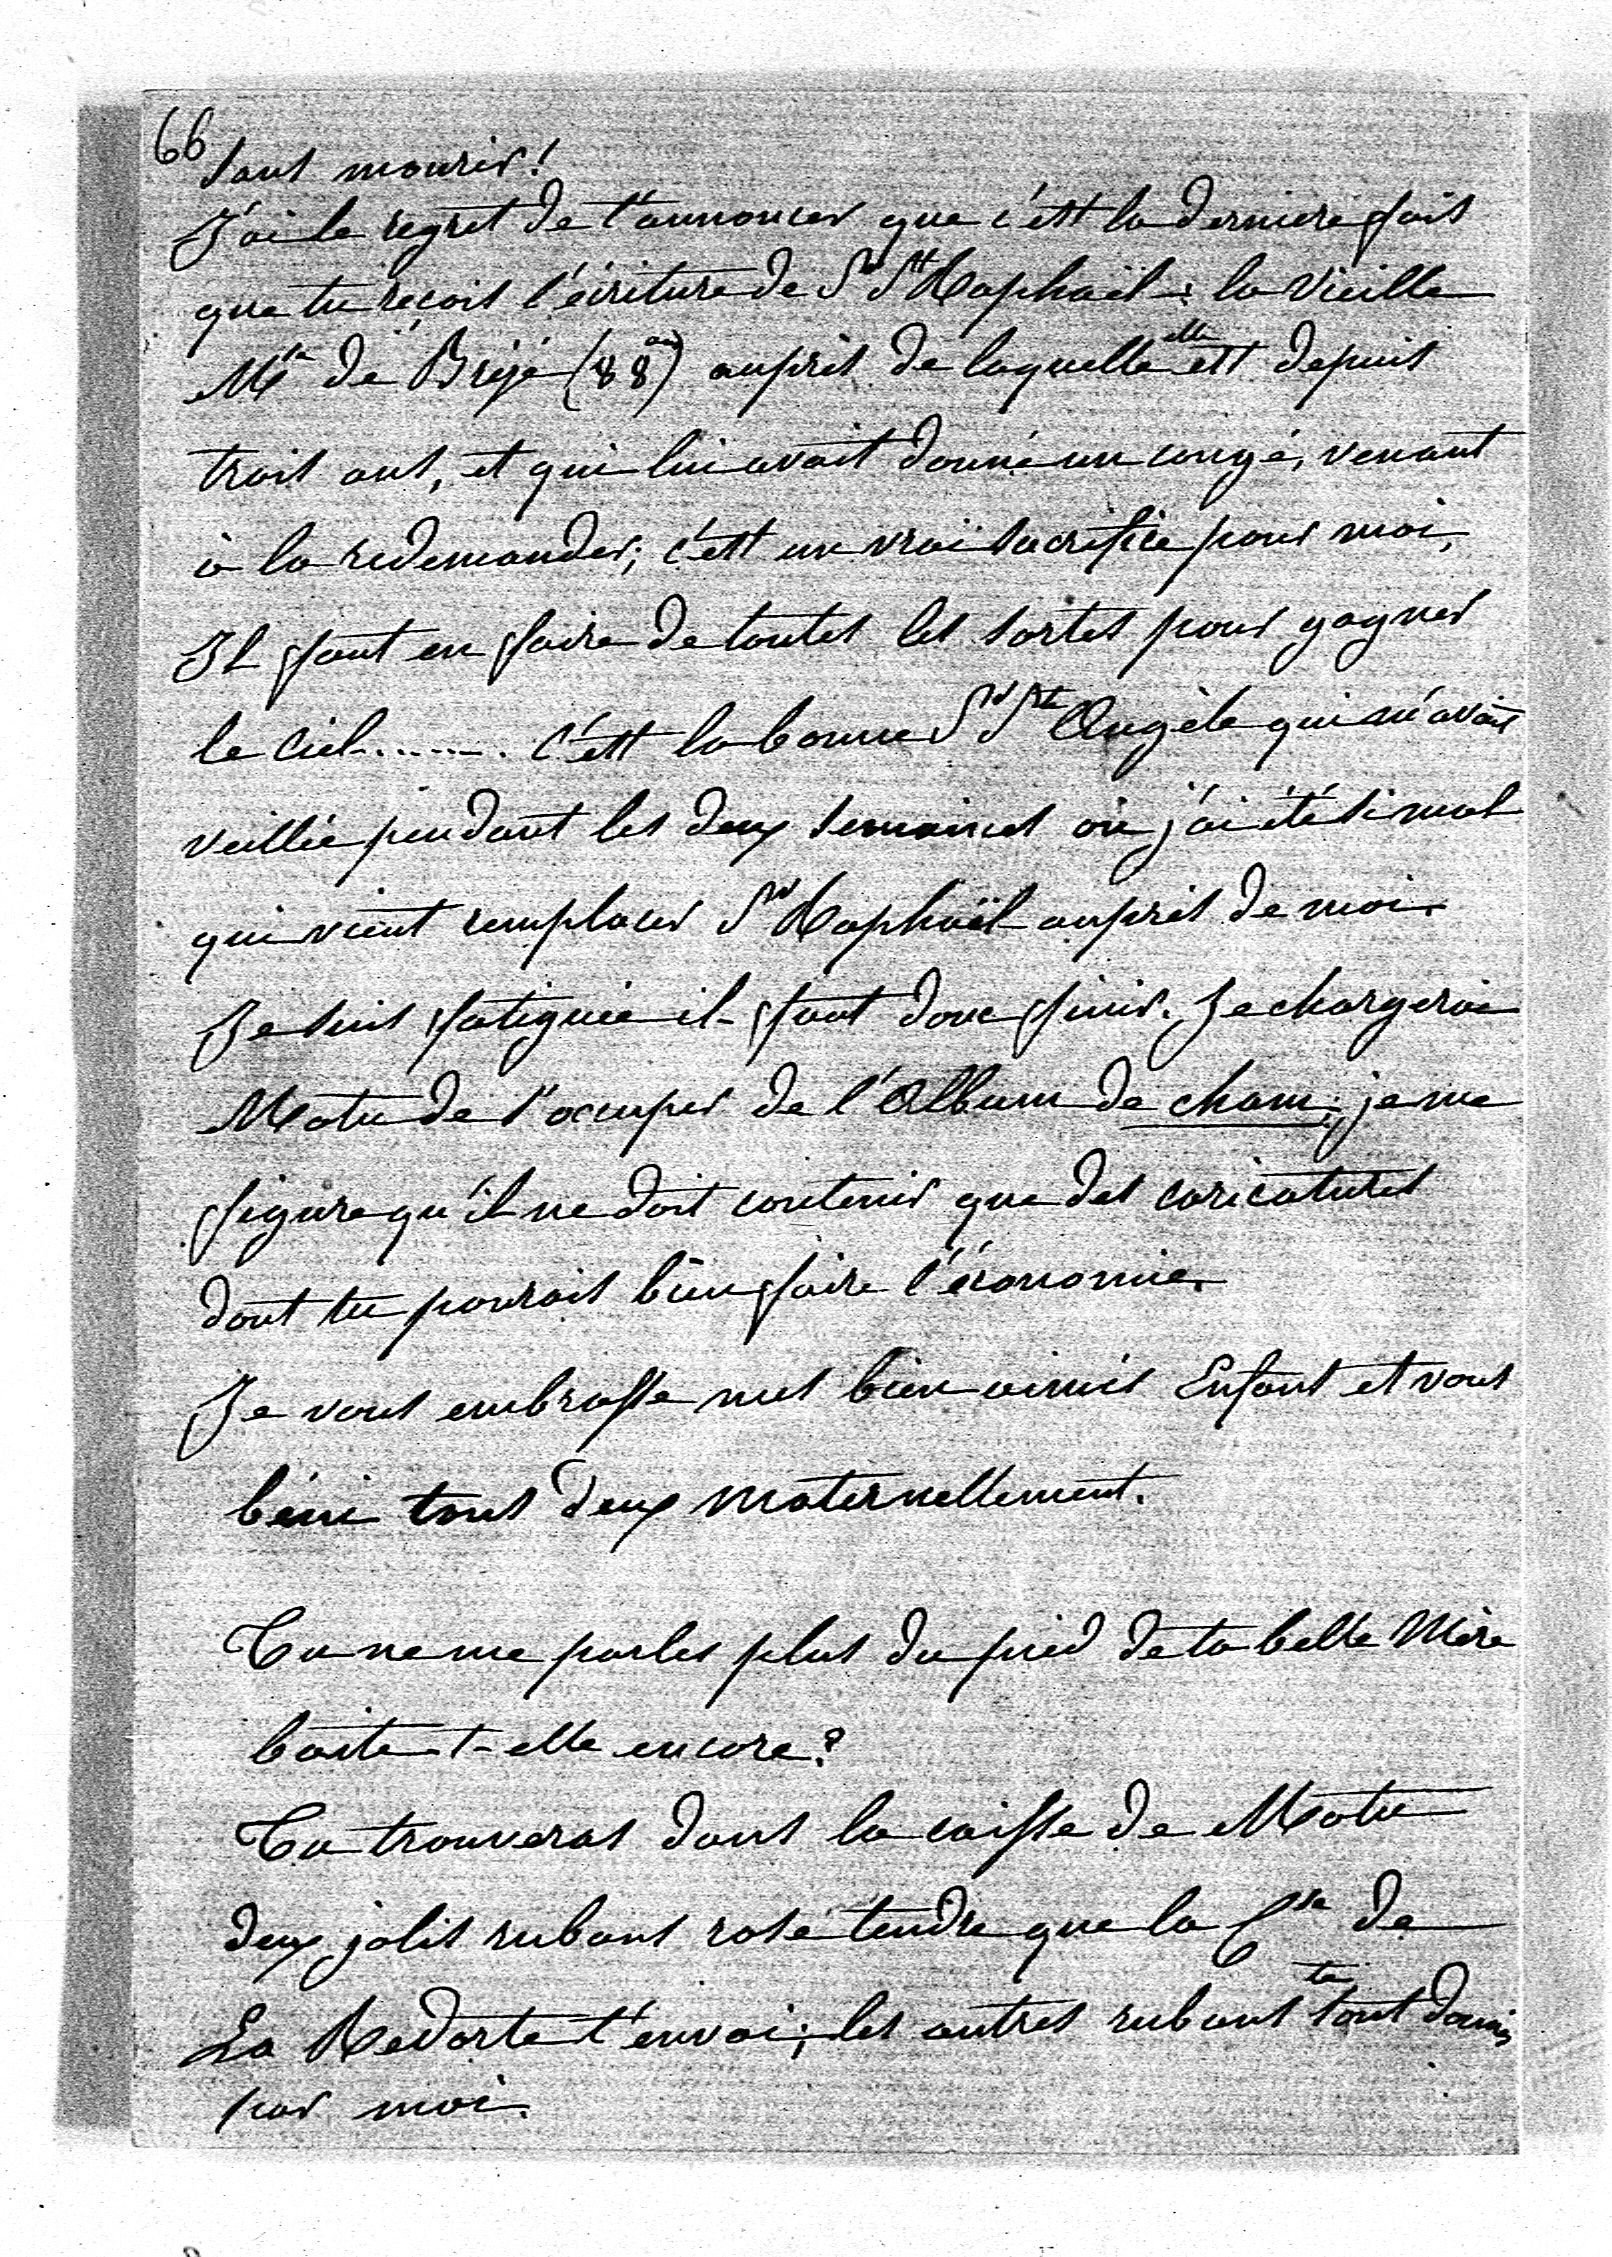 66
sans mourir!
J'ai le regret de t'annoncer que c'est la derniere fois
que tu reçois l'écriture de Sr St Raphaël: la Vieille
Me de Brézé (88 ans) auprès de laquelle elle est depuis
trois ans, et qui lui avait donné un congé, venant
à la redemander; c'est un vrai sacrifice pour moi,
Il faut en faire de toutes les sortes pour gagner
le Ciel....... C'est la bonne Sr Ste Angèle qui m'avait
veillée pendant les deux semaines où j'ai été si mal
qui vient remplacer Sr Raphaël auprès de moi.
Je suis fatiguée il faut donc finir. Je chargerai
de s'occuper de l'Album de cham; je me
figure qu'il ne doit contenir que des caricatures
dont tu pourais bien faire l'économie.
Je vous embrasse mes bien aimés Enfans et vous
béni tous deux maternellement.
Tu ne me parles plus du pied de ta belle Mère
boite-t-elle encore?
Tu trouveras dans la caisse de
deux jolis rubans rose tendre que la Csse de
La Redorte t'envoi; les autres rubans te sont donnés
par moi.